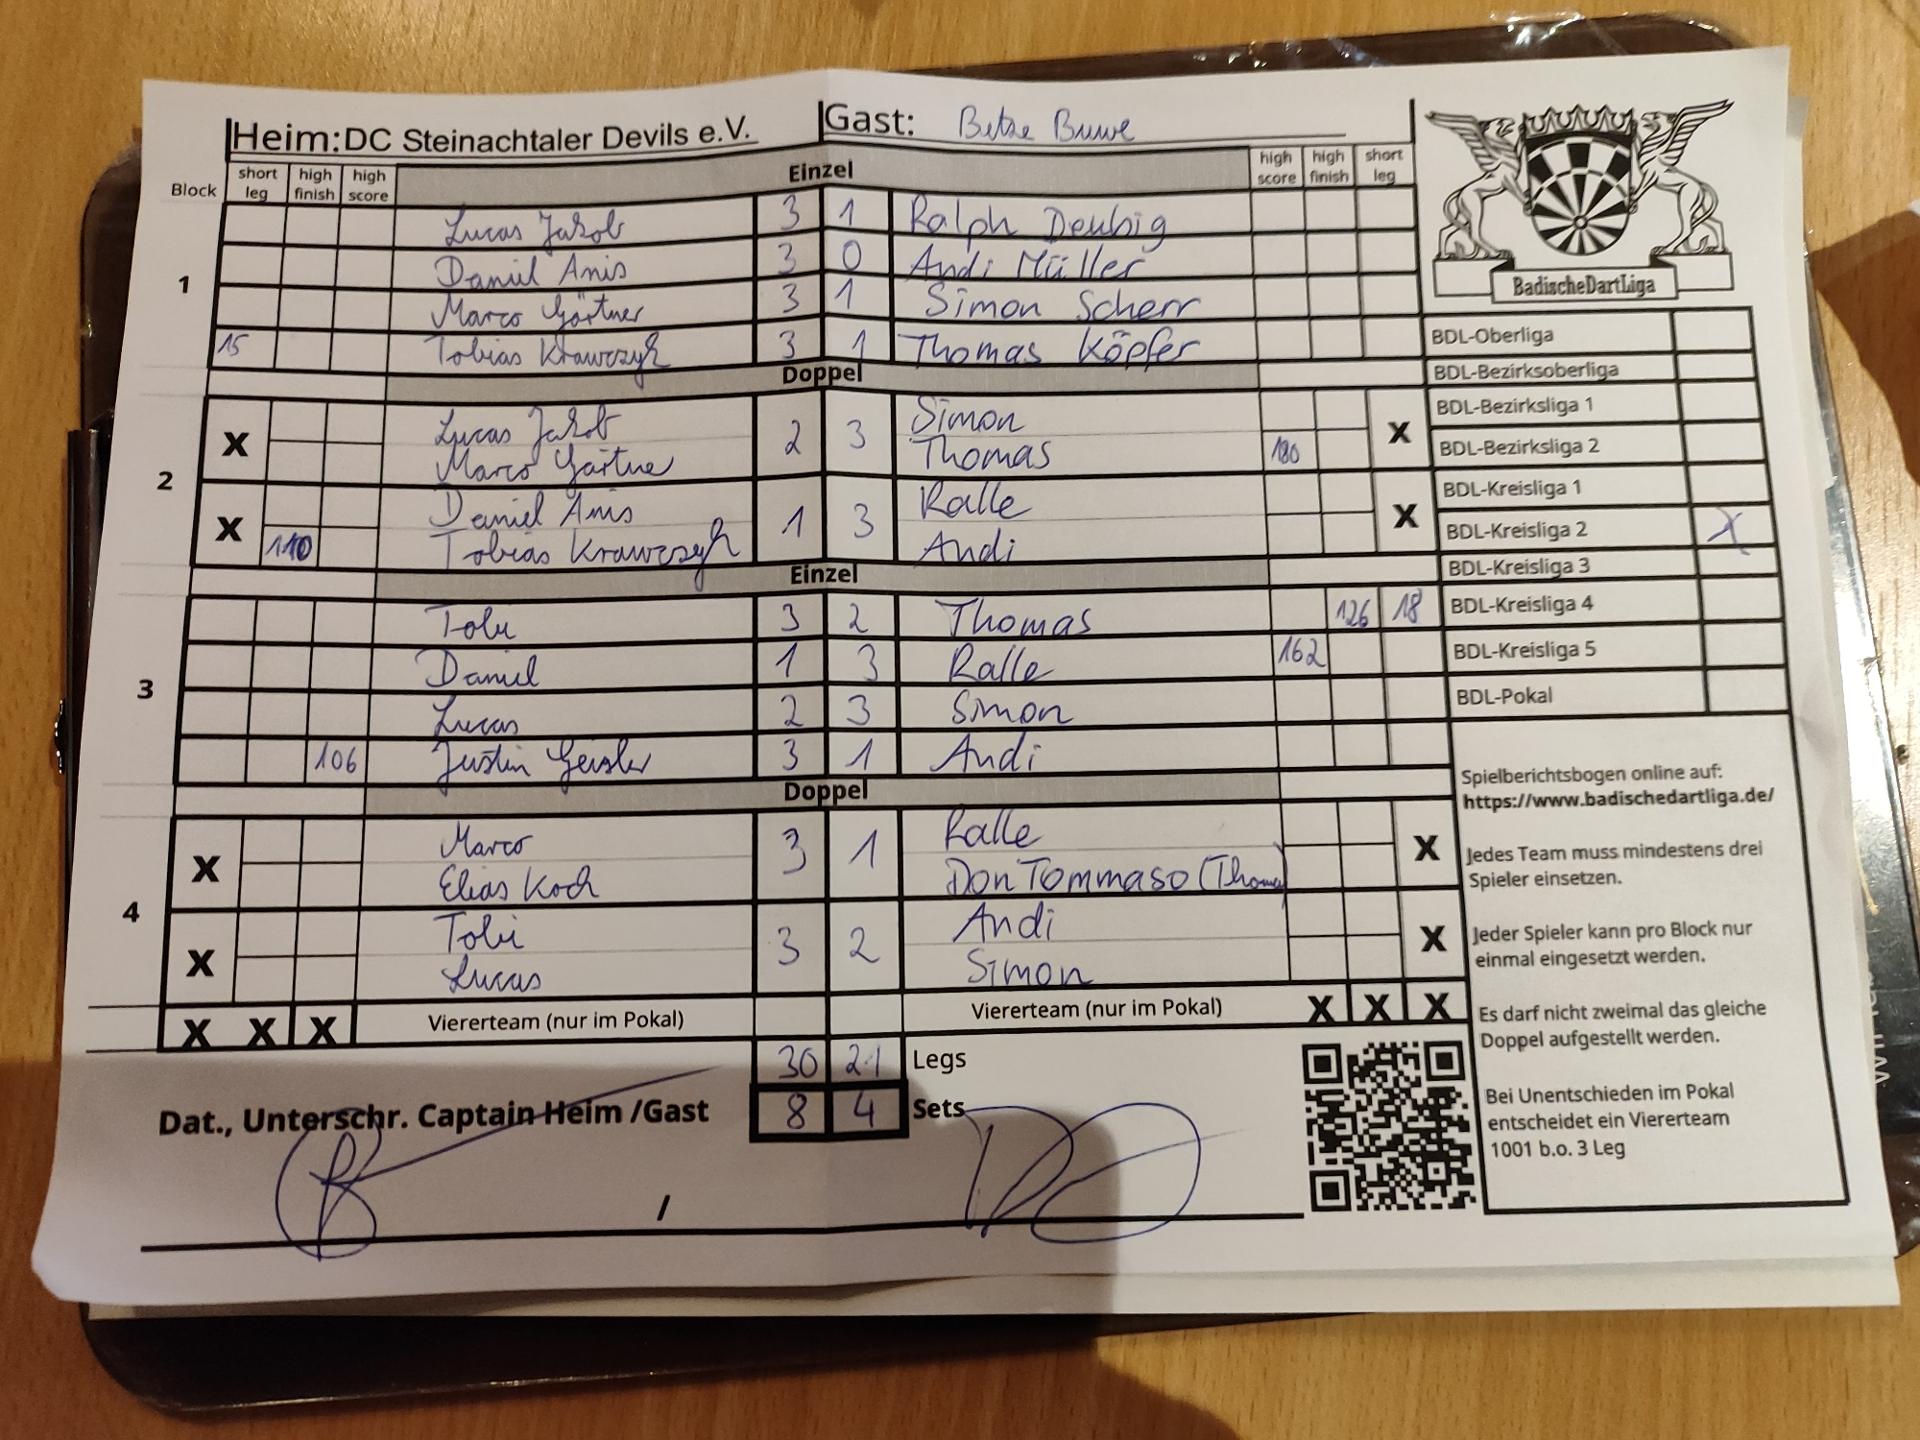 Heim: DC Steinachtaler Devils e.V. Gast: Betze Buwe
Block short leg high finish high score Einzel high score high finish short leg
1
Lucas Jakob 3 1 Ralph Deubig
Daniel Anis 3 0 Andi Müller
Marco Gärtner 3 1 Simon Scherr
15 Tobias Krawczyk 3 1 Thomas Köpfer
Doppel
2
X Lucas Jakob 2 3 Simon X
Marco Gärtner Thomas 180
X Daniel Anis 1 3 Ralle X
110 Tobias Krawczyk Andi
Einzel
3
Tobi 3 2 Thomas 126 18
Daniel 1 3 Ralle 162
Lucas 2 3 Simon
106 Justin Geisler 3 1 Andi
Doppel
4
X Marco 3 1 Ralle X
Elias Koch Don Tommaso (Thomas)
X Tobi 3 2 Andi X
Lucas Simon
X X X Viererteam (nur im Pokal) Viererteam (nur im Pokal) X X X
30 21 Legs
Dat., Unterschr. Captain Heim /Gast 8 4 Sets
/
BadischeDartLiga
BDL-Oberliga
BDL-Bezirksoberliga
BDL-Bezirksliga 1
BDL-Bezirksliga 2
BDL-Kreisliga 1
BDL-Kreisliga 2 X
BDL-Kreisliga 3
BDL-Kreisliga 4
BDL-Kreisliga 5
BDL-Pokal
Spielberichtsbogen online auf:
https://www.badischedartliga.de/
Jedes Team muss mindestens drei
Spieler einsetzen.
Jeder Spieler kann pro Block nur
einmal eingesetzt werden.
Es darf nicht zweimal das gleiche
Doppel aufgestellt werden.
Bei Unentschieden im Pokal
entscheidet ein Viererteam
1001 b.o. 3 Leg